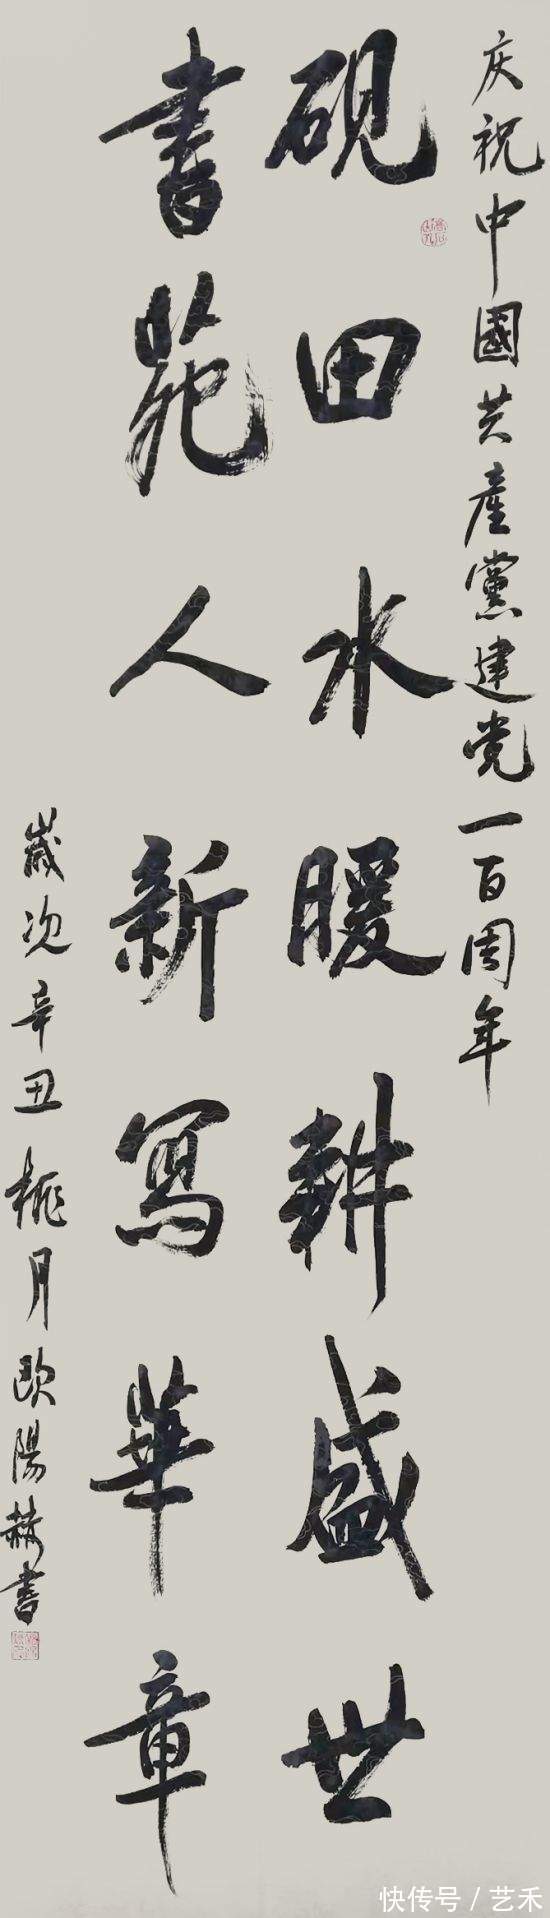 庆祝中國共產黨建党一百周年
硯田水暖耕盛世
書苑人新寫華章
歲次辛丑桃月欧陽赫書
快传号/艺禾